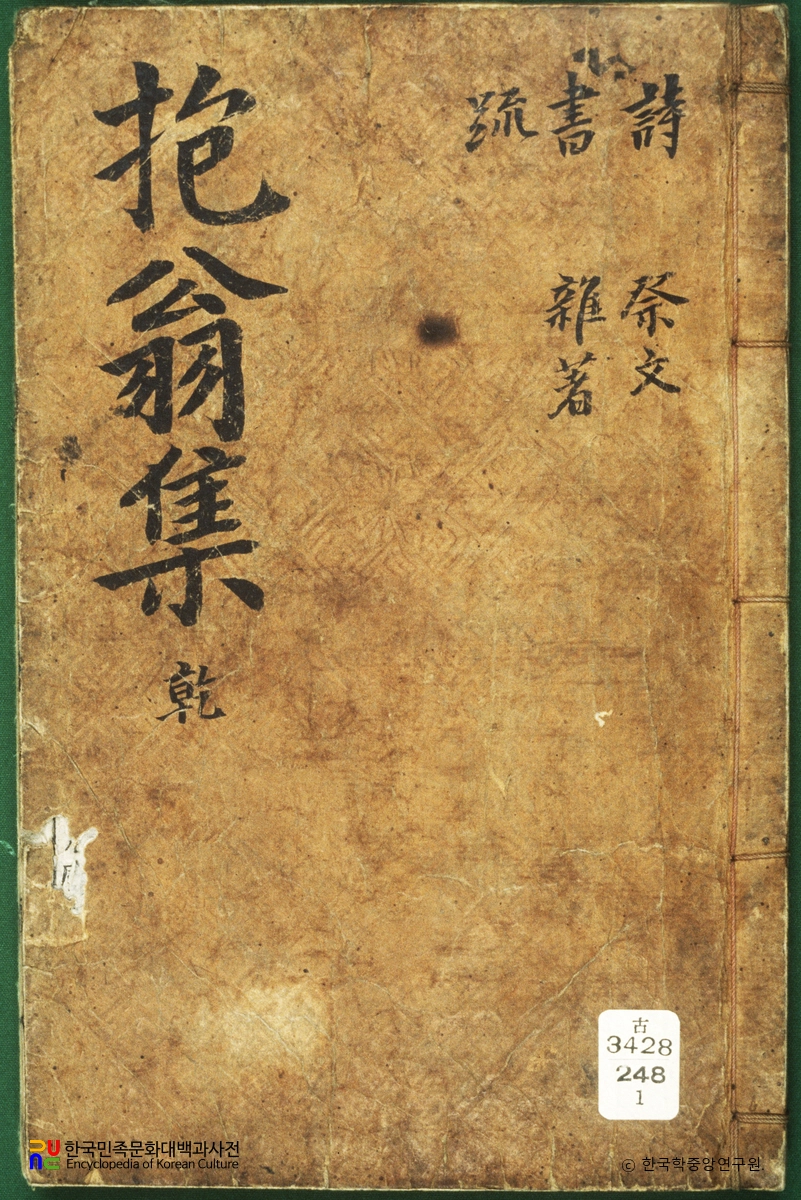 詩 祭文
書 雜著
疏
抱翁集 乾
古
3428
248
1
한국민족문화대백과사전
Encyclopedia of Korean Culture
© 한국학중앙연구원